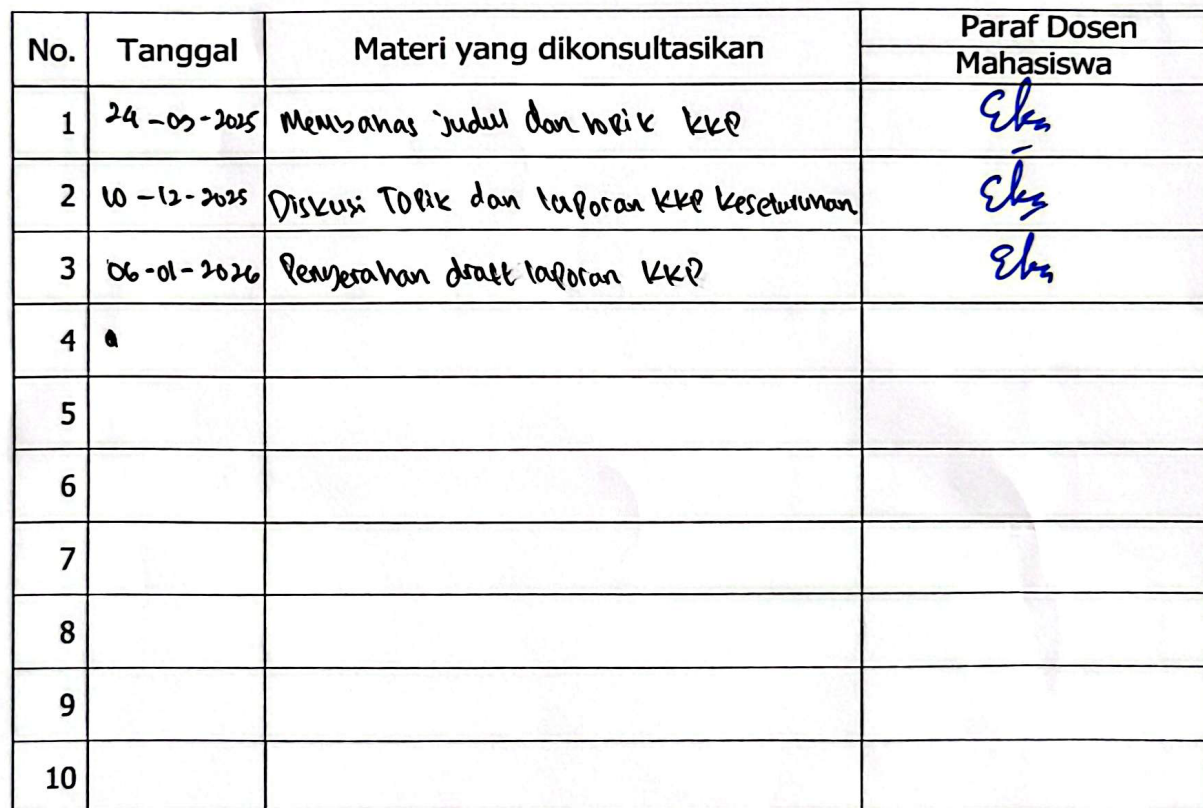 No. Tanggal Materi yang dikonsultasikan Paraf Dosen
Mahasiswa
1 24-09-2025 Membahas judul dan topik KKP Eka
2 10-12-2025 Diskusi Topik dan laporan KKP keseluruhan Eka
3 06-01-2026 Penyerahan draft laporan KKP Eka
4
5
6
7
8
9
10